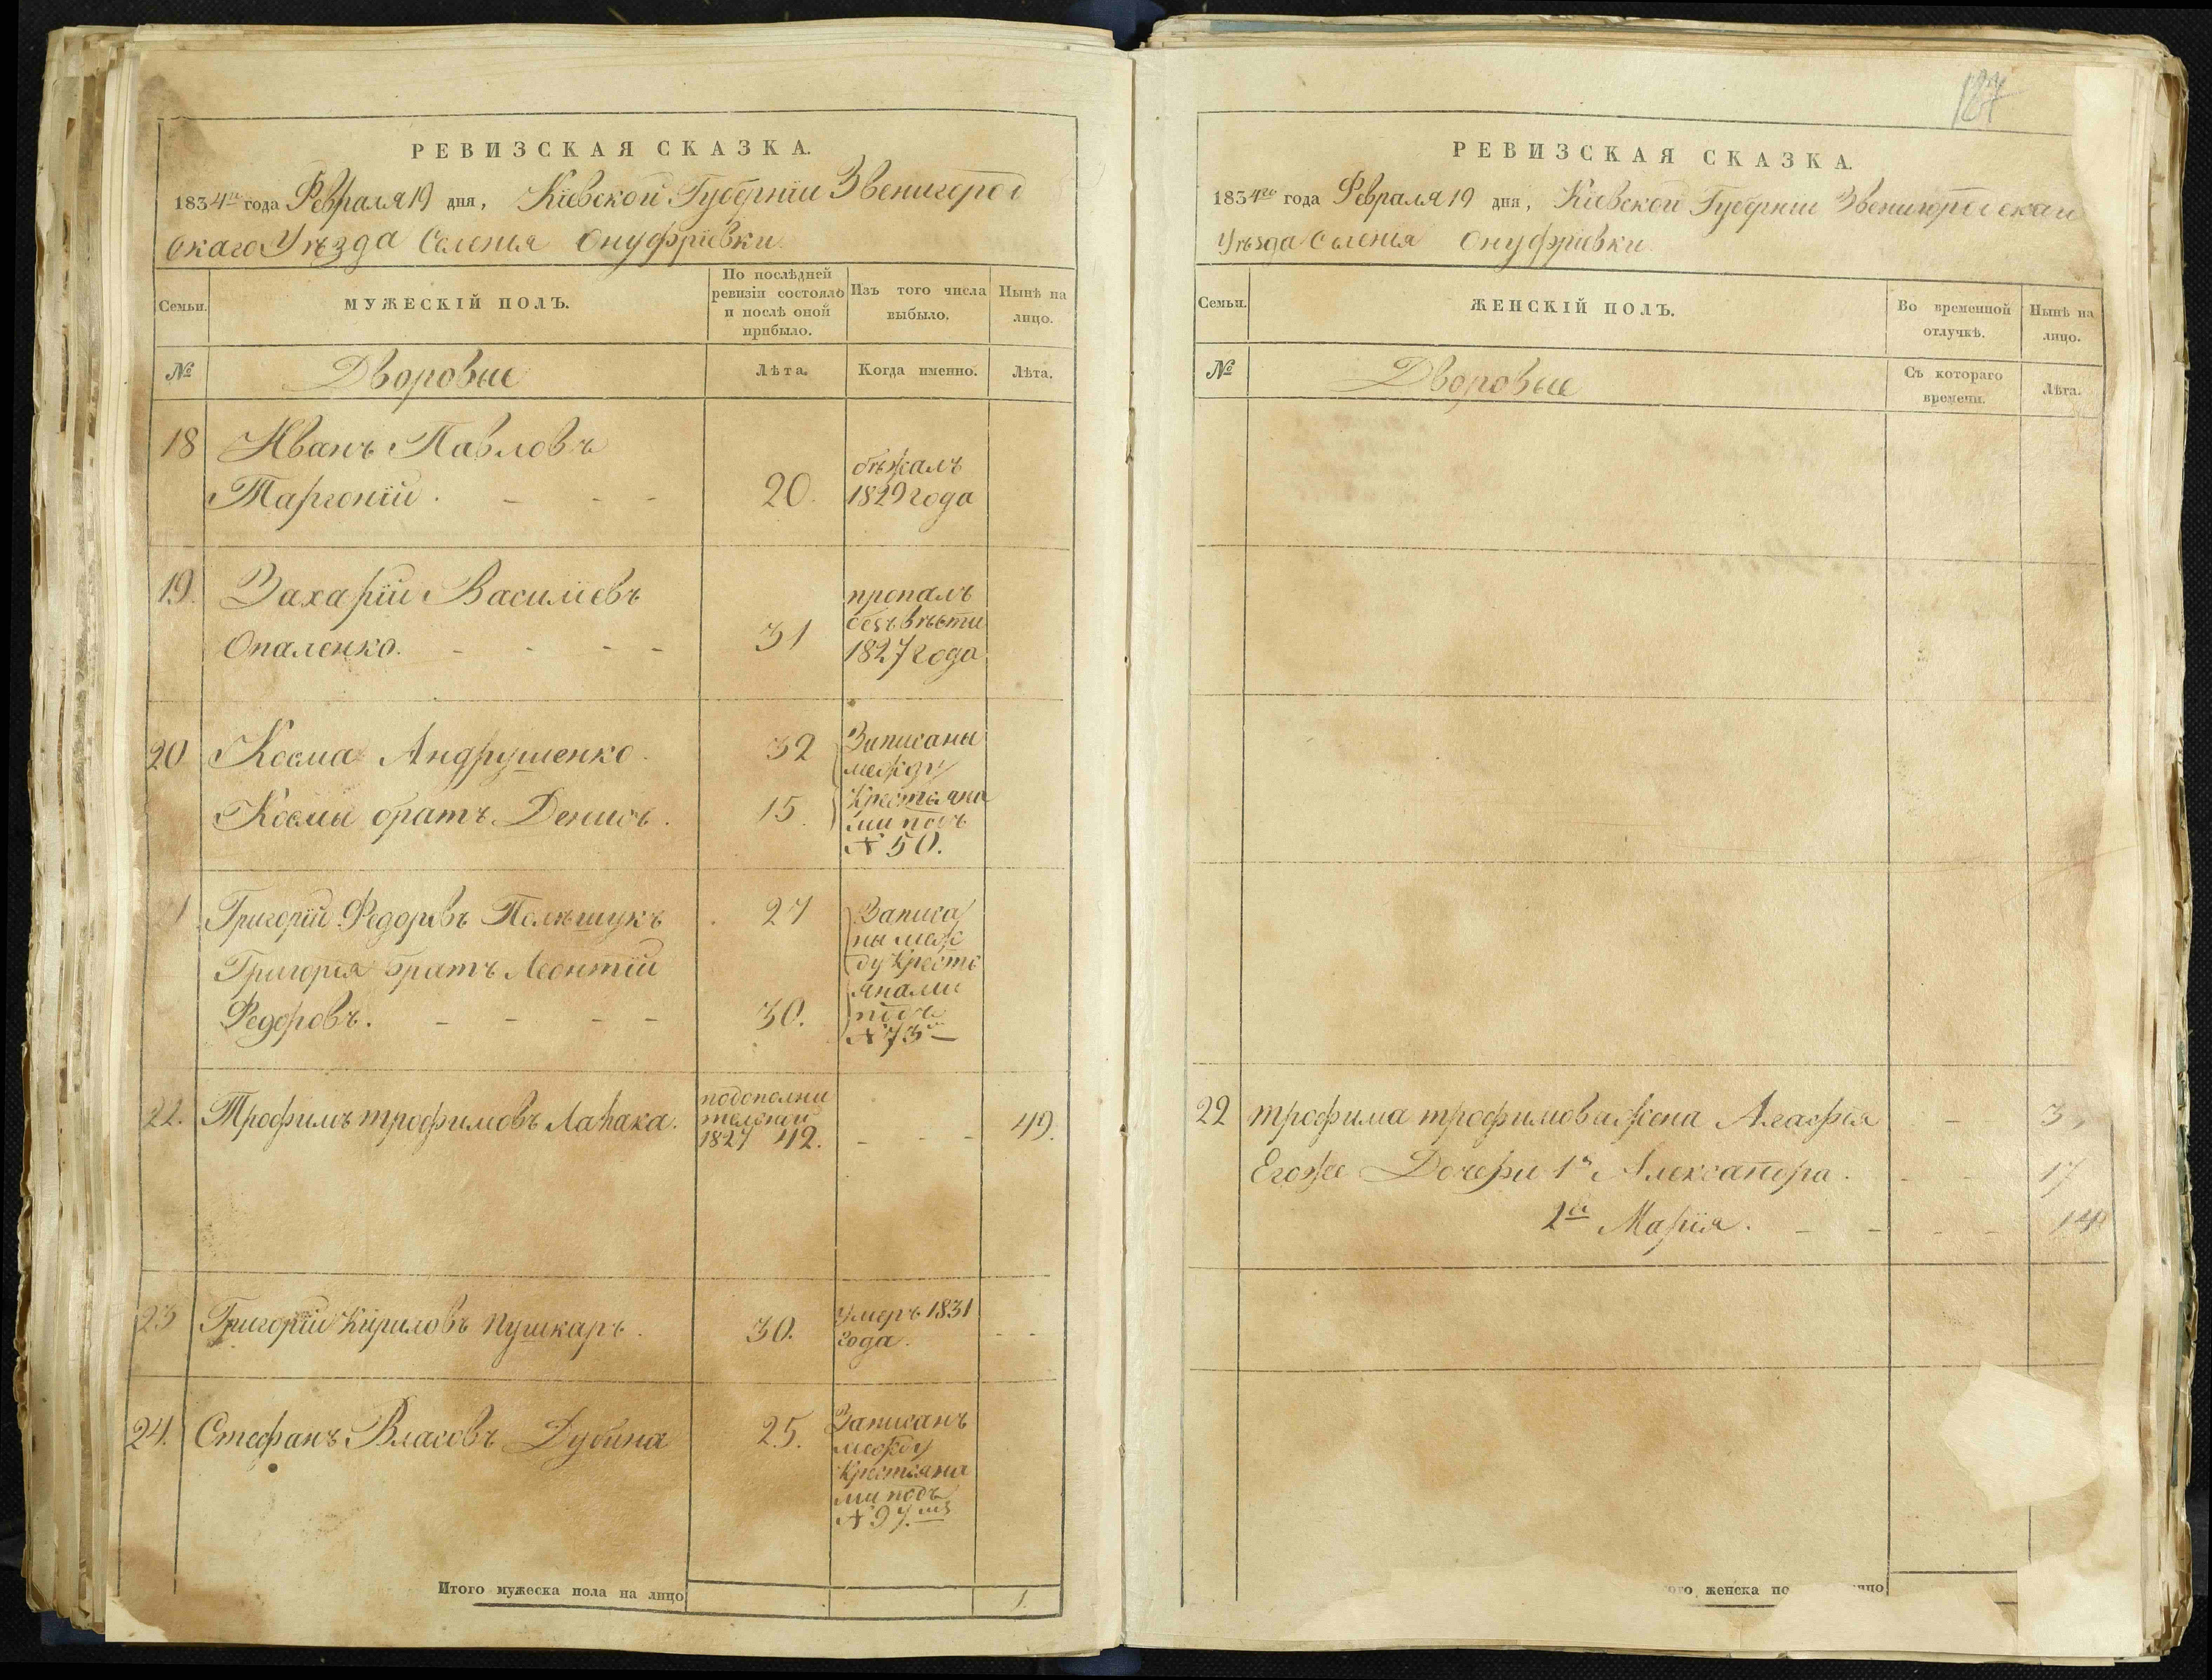 РЕВИЗСКАЯ СКАЗКА.
1834го года Февраля 19 дня, Кіевской Губерніи Звенигород
скаго Уѣзда Селенія Онуфріевки
Семьи.
МУЖЕСКІЙ ПОЛЪ.
По послѣдней
ревизіи состояло
и послѣ оной
прибыло.
Изъ того числа
выбыло.
Нынѣ на
лицо.
№
Дворовые
Лѣта.
Когда именно.
Лѣта.
18 Иванъ Павловъ
Таргоній. 20.
бѣжалъ
1829 года
19. Захарій Василіевъ
Опаленко. 31
пропалъ
безъ вѣсти
1827 года
20 Косма Андрушенко. 32
Космы братъ Денисъ. 15.
Записаны
между
Крестьяна
ми подъ
№ 50.
1 Григорій Федоровъ Полѣщукъ 27
Григорія братъ Леонтій
Федоровъ. 30.
Записа
ны меж
ду Кресть
янами
подъ
№ 73
22. Трофимъ трофимовъ Лаћака.
подополни
тельной
1827 42. 49.
23 Григорій Кириловъ Пушкаръ. 30.
Умеръ 1831
года.
24. Стефанъ Власовъ Дубина 25.
Записанъ
между
Крестьяна
ми подъ
№ 97.мъ
Итого мужеска пола на лицо 1.
РЕВИЗСКАЯ СКАЗКА.
1834го года Февраля 19 дня, Кіевской Губерніи Звенигородскаго
Уѣзда Селенія Онуфріевки
Семьи.
ЖЕНСКІЙ ПОЛЪ.
Во временной
отлучкѣ.
Нынѣ на
лицо.
№
Дворовые
Съ котораго
времени.
Лѣта.
22 трофима трофимова жена Агафія 3
Егоже Дочери 1я Александра. 17
2я Марія. 14
женска по